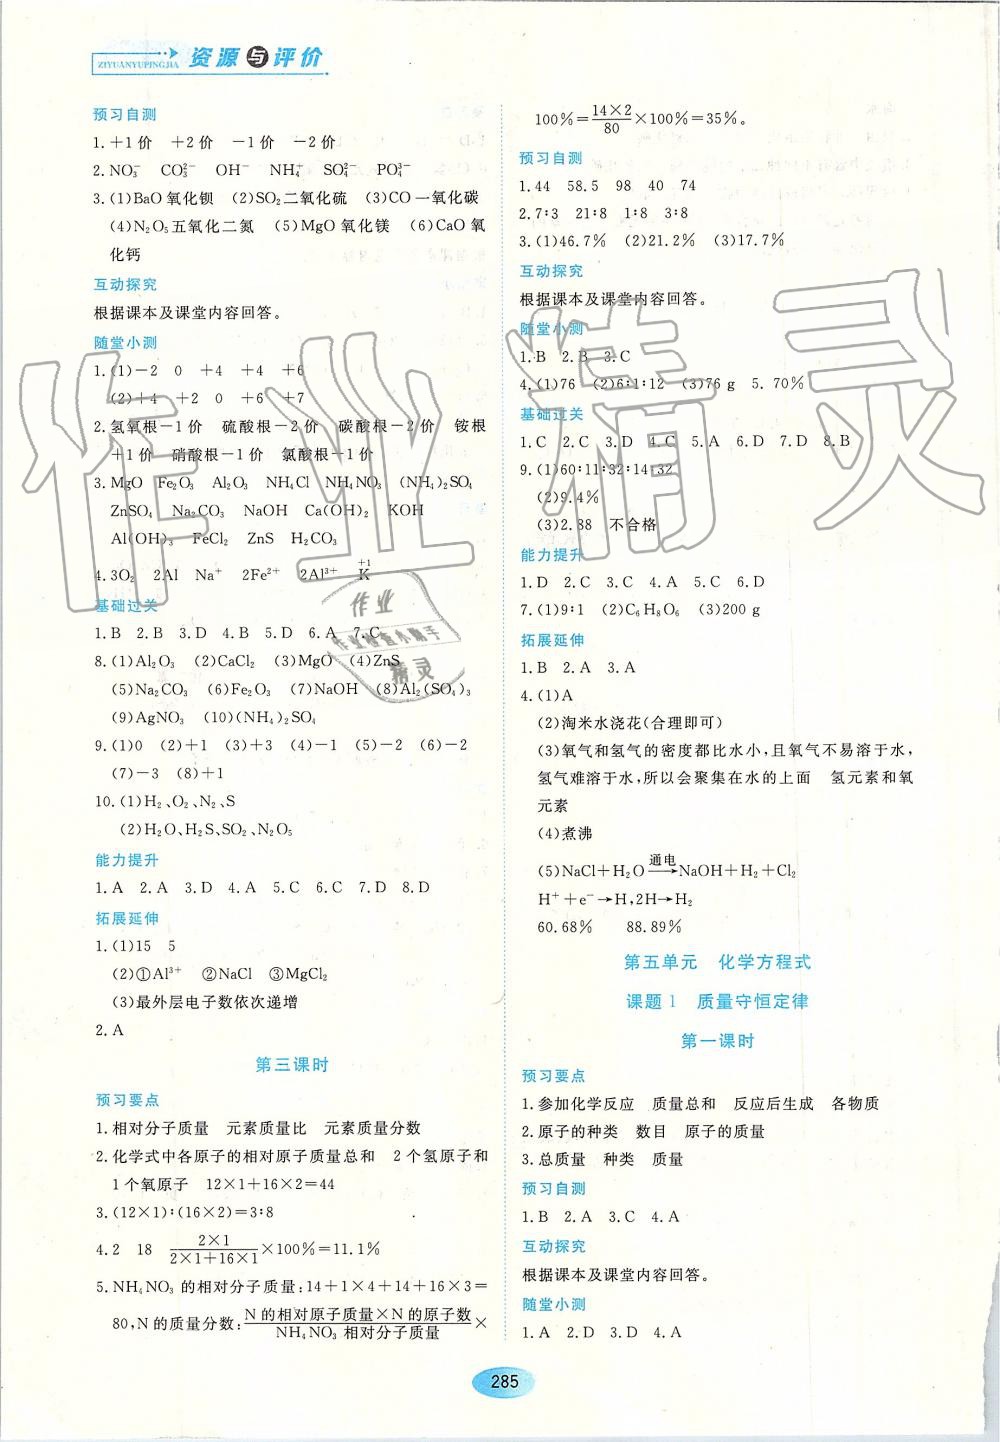 ZIYUANYUPINGJIA 资源与评价
预习自测
1.+1价 +2价 -1价 -2价
2.NO₃⁻ CO₃²⁻ OH⁻ NH₄⁺ SO₄²⁻ PO₄³⁻
3.(1)BaO氧化钡 (2)SO₂二氧化硫 (3)CO一氧化碳
(4)N₂O₅五氧化二氮 (5)MgO氧化镁 (6)CaO氧
化钙
互动探究
根据课本及课堂内容回答。
随堂小测
1.(1)-2 0 +4 +4 +6
(2)+4 +2 0 +6 +7
2.氢氧根-1价 硫酸根-2价 碳酸根-2价 铵根
+1价 硝酸根-1价 氯酸根-1价
3.MgO Fe₂O₃ Al₂O₃ NH₄Cl NH₄NO₃ (NH₄)₂SO₄
ZnSO₄ Na₂CO₃ NaOH Ca(OH)₂ KOH
Al(OH)₃ FeCl₂ ZnS H₂CO₃
4.3O₂ 2Al Na⁺ 2Fe²⁺ 2Al³⁺ K(+1)
基础过关
1.B 2.B 3.D 4.B 5.D 6.A 7.C
8.(1)Al₂O₃ (2)CaCl₂ (3)MgO (4)ZnS
(5)Na₂CO₃ (6)Fe₂O₃ (7)NaOH (8)Al₂(SO₄)₃
(9)AgNO₃ (10)(NH₄)₂SO₄
9.(1)0 (2)+1 (3)+3 (4)-1 (5)-2 (6)-2
(7)-3 (8)+1
10.(1)H₂、O₂、N₂、S
(2)H₂O、H₂S、SO₂、N₂O₅
能力提升
1.A 2.A 3.D 4.A 5.C 6.C 7.D 8.D
拓展延伸
1.(1)15 5
(2)①Al³⁺ ②NaCl ③MgCl₂
(3)最外层电子数依次递增
2.A
第三课时
预习要点
1.相对分子质量 元素质量比 元素质量分数
2.化学式中各原子的相对原子质量总和 2个氢原子和
1个氧原子 12×1+16×2=44
3.(12×1):(16×2)=3:8
4.2 18 2×1/2×1+16×1×100%=11.1%
5.NH₄NO₃的相对分子质量:14+1×4+14+16×3=
80,N的质量分数:N的相对原子质量×N的原子数/NH₄NO₃相对分子质量×
100%=14×2/80×100%=35%。
预习自测
1.44 58.5 98 40 74
2.7:3 21:8 1:8 3:8
3.(1)46.7% (2)21.2% (3)17.7%
互动探究
根据课本及课堂内容回答。
随堂小测
1.B 2.B 3.C
4.(1)76 (2)6:1:12 (3)76 g 5.70%
基础过关
1.C 2.C 3.D 4.C 5.A 6.D 7.D 8.B
9.(1)60:11:32:14:32
(2)9.4%
(3)2.88 不合格
能力提升
1.D 2.C 3.C 4.A 5.C 6.D
7.(1)9:1 (2)C₆H₈O₆ (3)200 g
拓展延伸
1.B 2.A 3.A
4.(1)A
(2)淘米水浇花(合理即可)
(3)氧气和氢气的密度都比水小,且氧气不易溶于水,
氢气难溶于水,所以会聚集在水的上面 氢元素和氧
元素
(4)煮沸
(5)NaCl+H₂O 通电→NaOH+H₂+Cl₂
H⁺+e⁻→H,2H→H₂
60.68% 88.89%
第五单元 化学方程式
课题1 质量守恒定律
第一课时
预习要点
1.参加化学反应 质量总和 反应后生成 各物质
2.原子的种类 数目 原子的质量
3.总质量 种类 质量
预习自测
1.B 2.A 3.C 4.A
互动探究
根据课本及课堂内容回答。
随堂小测
1.A 2.D 3.D 4.A
285
作业精灵
作业
作业检查小助手
精灵